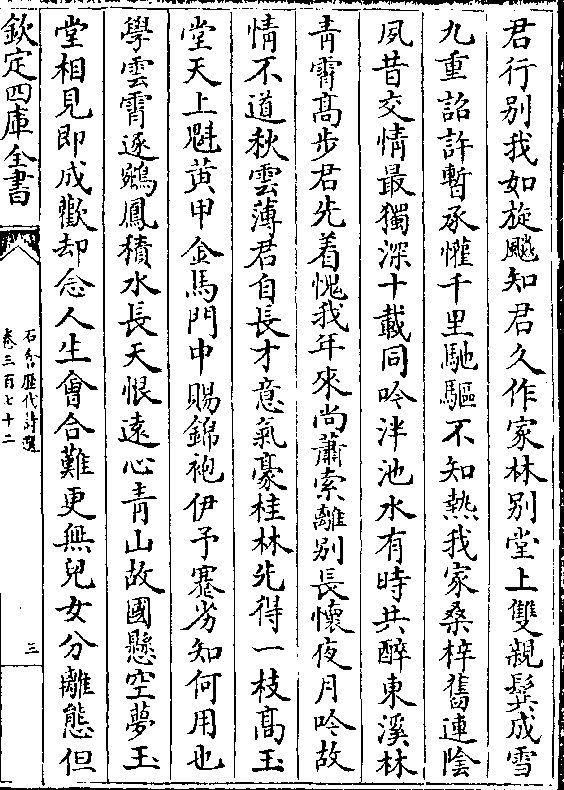 君行别我如旋飈知君久作家林别堂上雙親鬂成雪
九重詔許暫承懽千里馳驅不知熱我家桑梓舊連陰
夙昔交情最獨深十載同吟泮池水有時共醉東溪林
青霄髙步君先着愧我年來尚蕭索離别長懐夜月吟故
情不道秋雲薄君自長才意氣豪桂林先得一枝髙玉
堂天上魁黄甲金馬門中賜錦袍伊予蹇劣知何用也
學雲霄逐鵷鳳積水長天恨遠心青山故國懸空夢玉
堂相見即成歡却念人生會合難更無兒女分離態但
欽定四庫全書
石倉歴代詩選
卷三百七十二
三